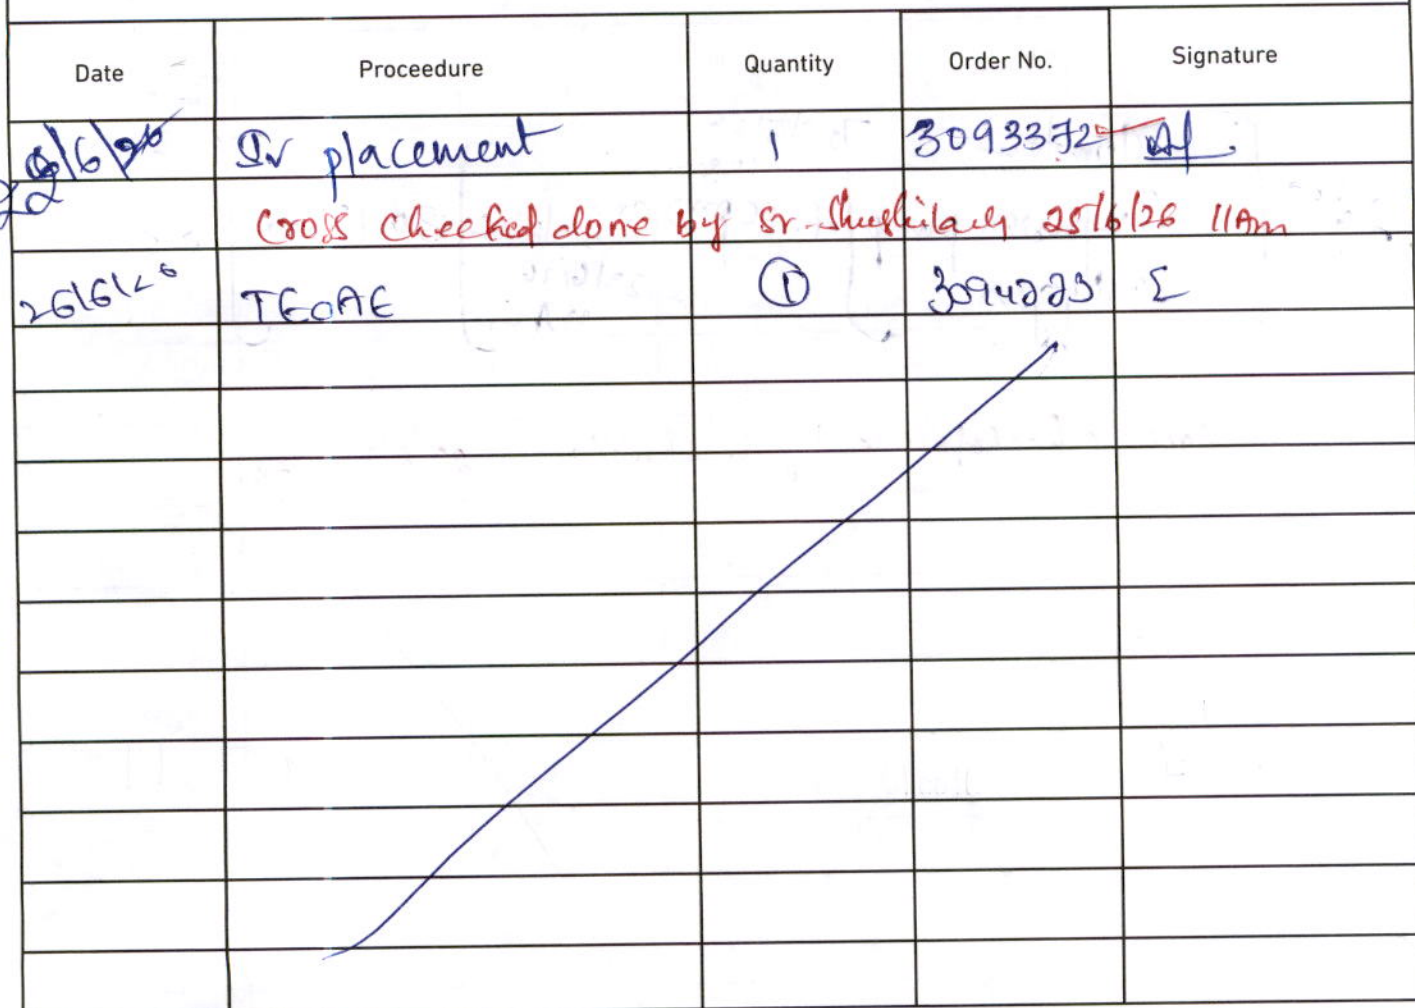 Date Proceedure Quantity Order No. Signature
/6/26 Iv placement 1 3093372
Cross checked done by Sr. 25/6/26 11Am
26/6/26 TEOAE 1 3094223